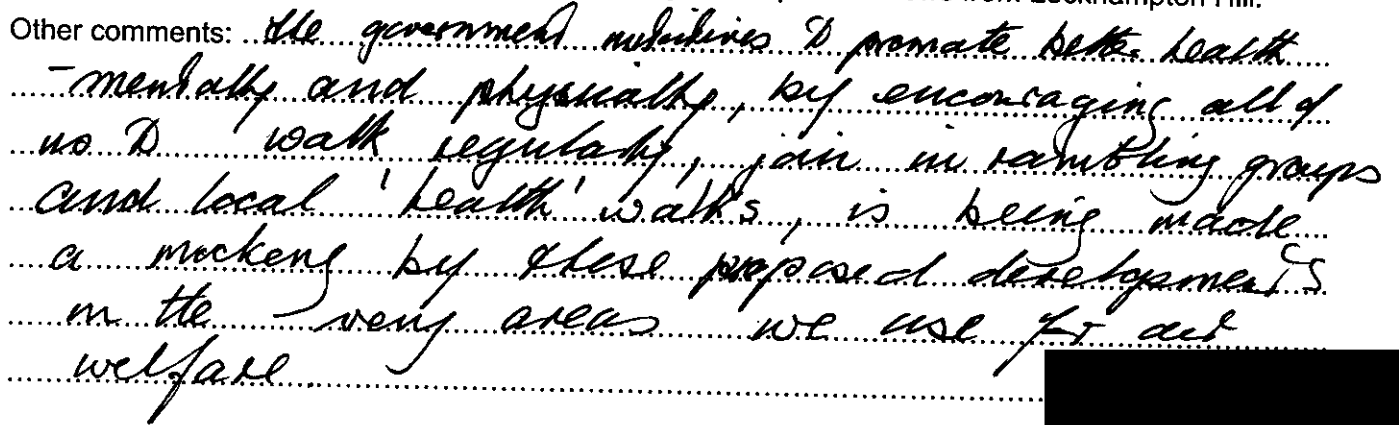 from Leckhampton Hill.
Other comments: the government initiatives to promote better health
- mentally and physically, by encouraging all of
us to walk regularly, join in rambling groups
and local 'health' walks, is being made
a mockery by these proposed developments
in the very areas we use for our
welfare.